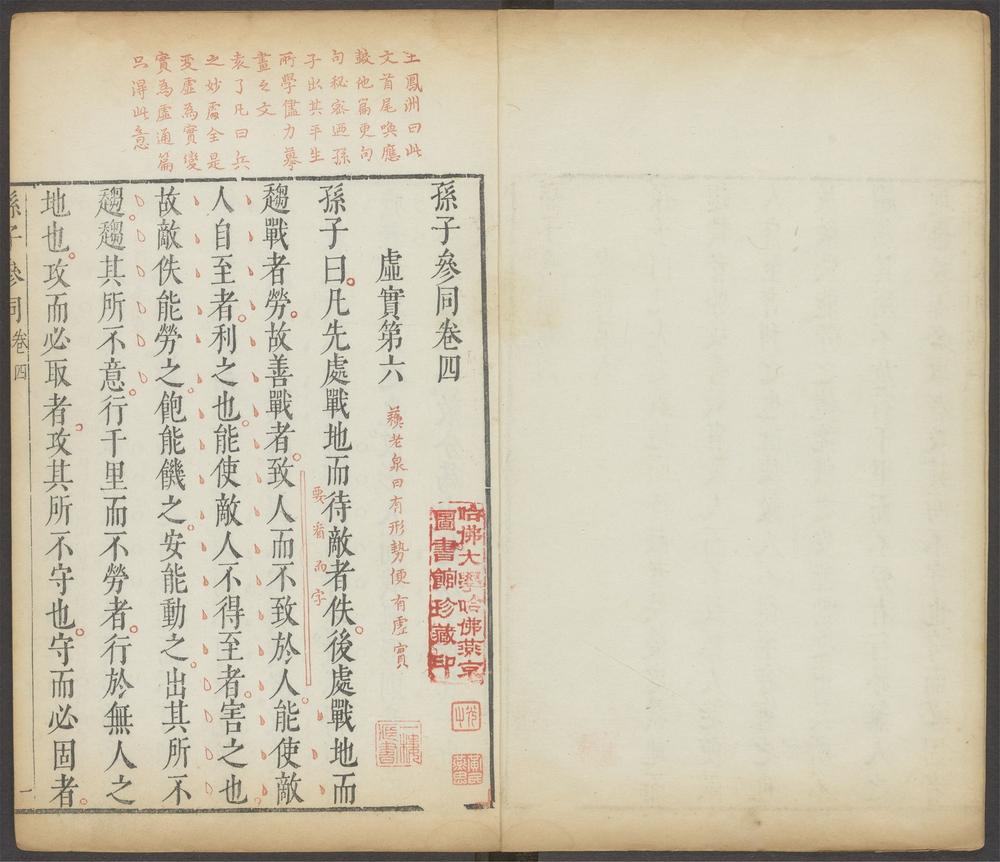 王鳳洲曰此
文首尾喚應
較他篇更句
句秘密廼孫
子出其平生
所學儘力摹
畫之文
袁了凡曰兵
之妙處全是
變虛為實變
實為虛通篇
只得此意
孫子參同卷四
哈佛大學哈佛燕京
圖書館珍藏印
虛實第六 蘇老泉曰有形勢便有虛實
孫子曰凡先處戰地而待敵者佚後處戰地而
要看而字
趨戰者勞故善戰者致人而不致於人能使敵
人自至者利之也能使敵人不得至者害之也
故敵佚能勞之飽能饑之安能動之出其所不
趨趨其所不意行千里而不勞者行於無人之
地也攻而必取者攻其所不守也守而必固者
孫子參同 卷四 一